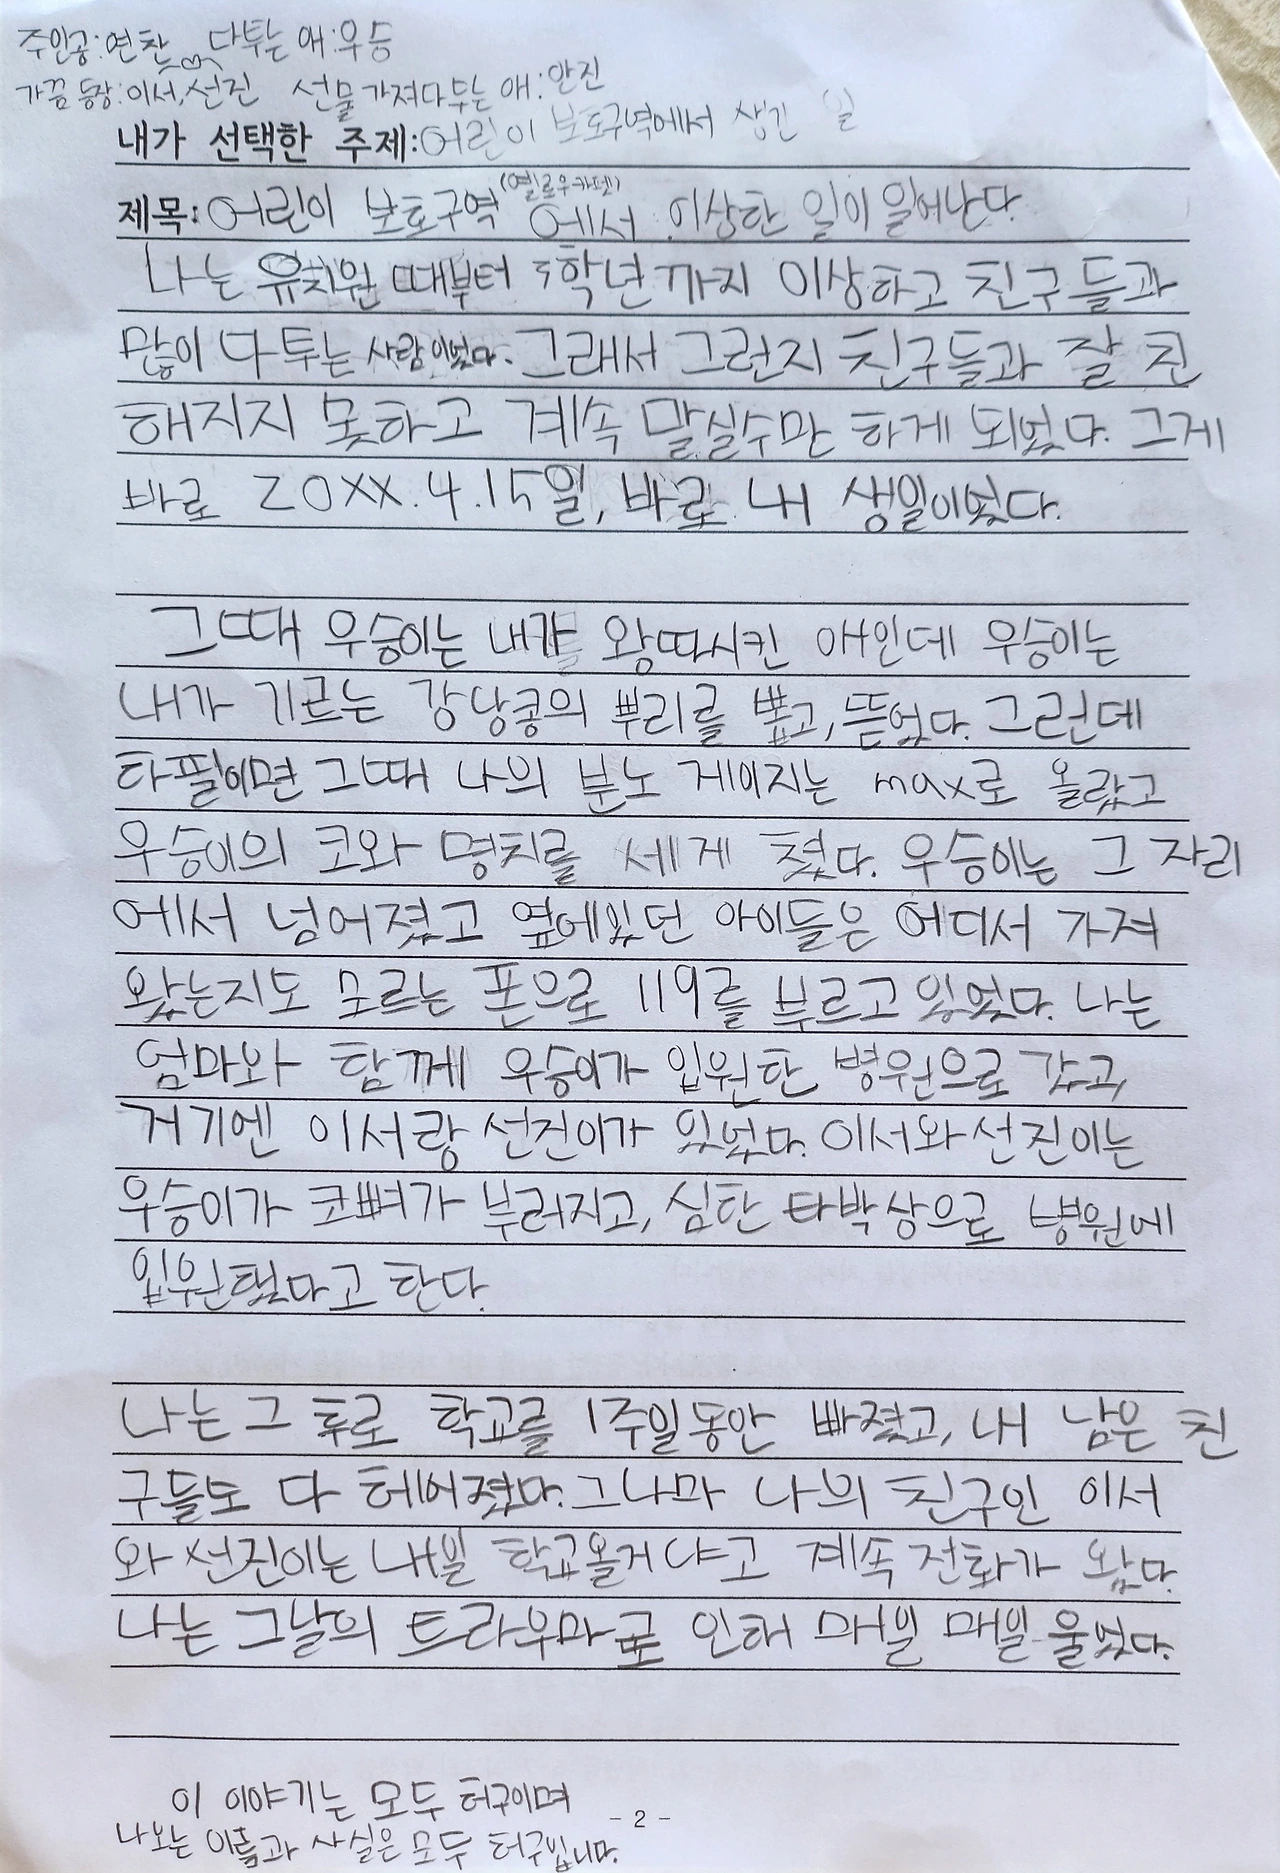 주인공:연찬 다투는 애:우승
가끔 등장:이서,선진 선물가져다두는 애:안진
내가 선택한 주제:어린이 보호구역에서 생긴 일
(옐로우카펫)
제목:어린이 보호구역에서 이상한 일이 일어난다.
나는 유치원 때부터 5학년까지 이상하고 친구들과
많이 다투는 사람이었다. 그래서 그런지 친구들과 잘 친
해지지 못하고 계속 말실수만 하게 되었다. 그게
바로 20XX.4.15일, 바로 내 생일이었다.
그때 우승이는 내가 왕따시킨 애인데 우승이는
내가 기르는 강낭콩의 뿌리를 뽑고, 뜯었다. 그런데
타필이면 그때 나의 분노 게이지는 max로 올랐고
우승이의 코와 명치를 세게 쳤다. 우승이는 그 자리
에서 넘어졌고 옆에있던 아이들은 어디서 가져
왔는지도 모르는 폰으로 119를 부르고 있었다. 나는
엄마와 함께 우승이가 입원한 병원으로 갔고,
거기엔 이서랑 선진이가 있었다. 이서와 선진이는
우승이가 코뼈가 부러지고, 심한 타박상으로 병원에
입원했다고 한다.
나는 그 후로 학교를 1주일동안 빠졌고, 내 남은 친
구들도 다 헤어졌다. 그나마 나의 친구인 이서
와 선진이는 내블 학교올거냐고 계속 전화가 왔다.
나는 그날의 트라우마로 인해 매블 매블 울었다.
이 이야기는 모두 허구이며
나오는 이름과 사실은 모두 허구입니다.
- 2 -